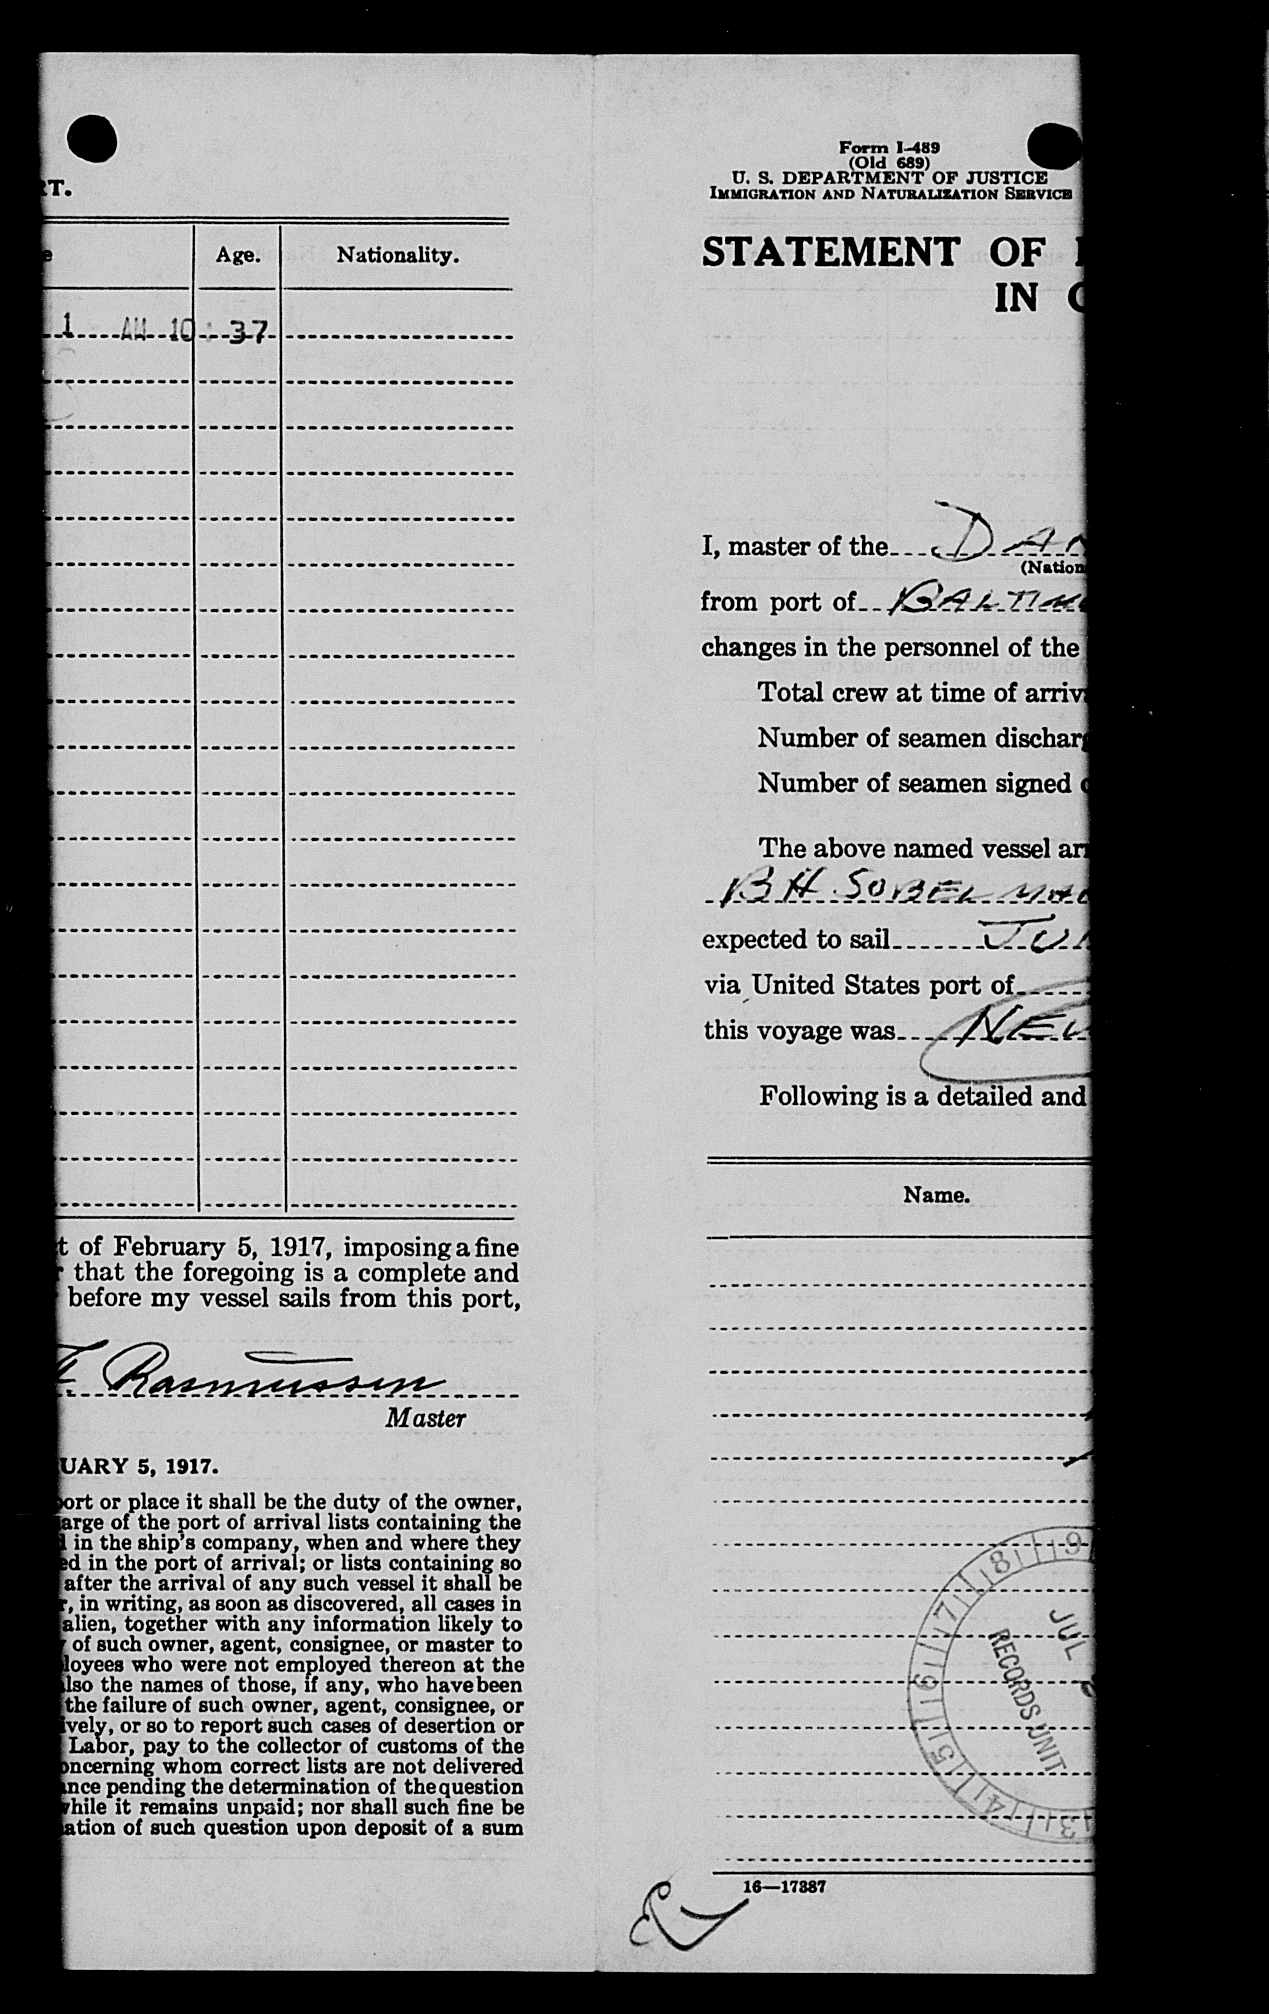 T.
Age. Nationality.
1 AM 10 : 37
t of February 5, 1917, imposing a fine
that the foregoing is a complete and
before my vessel sails from this port,
F. Rasmussen
Master
UARY 5, 1917.
ort or place it shall be the duty of the owner,
arge of the port of arrival lists containing the
in the ship's company, when and where they
ed in the port of arrival; or lists containing so
after the arrival of any such vessel it shall be
r, in writing, as soon as discovered, all cases in
alien, together with any information likely to
of such owner, agent, consignee, or master to
loyees who were not employed thereon at the
lso the names of those, if any, who have been
the failure of such owner, agent, consignee, or
vely, or so to report such cases of desertion or
Labor, pay to the collector of customs of the
oncerning whom correct lists are not delivered
nce pending the determination of the question
hile it remains unpaid; nor shall such fine be
ation of such question upon deposit of a sum
Form I-489
(Old 689)
U. S. DEPARTMENT OF JUSTICE
IMMIGRATION AND NATURALIZATION SERVICE
STATEMENT OF
IN C
I, master of the DAN
(Nation
from port of BALTIMO
changes in the personnel of the
Total crew at time of arriv
Number of seamen dischar
Number of seamen signed
The above named vessel ar
B H. SOBELMAN
expected to sail JUN
via United States port of
this voyage was NEW
Following is a detailed and
Name.
3 4 5 6 7 8 9
JUL
RECORDS UNIT
16—17387